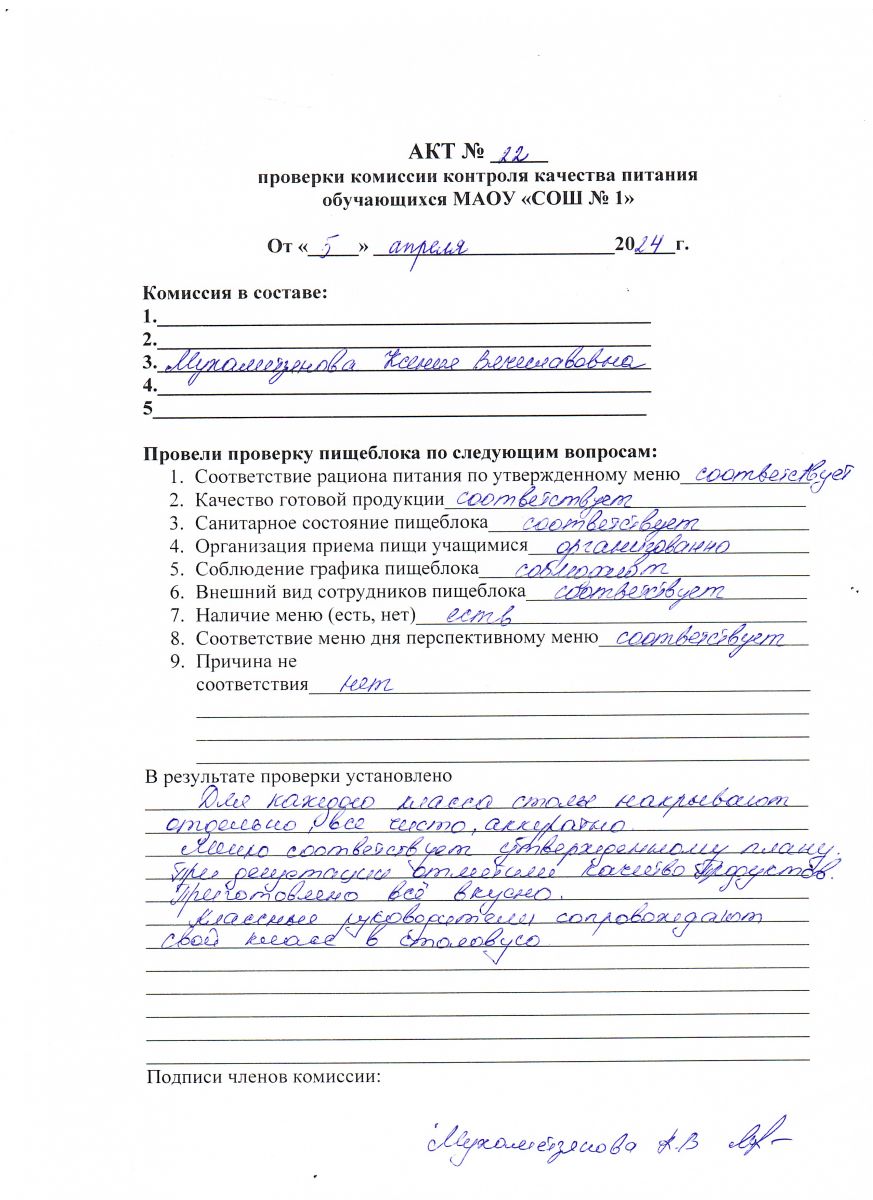 АКТ № 22
проверки комиссии контроля качества питания
обучающихся МАОУ «СОШ № 1»
От «5» апреля 2024г.
Комиссия в составе:
1.
2.
3. Мухаметзянова Ксения Вячеславовна
4.
5
Провели проверку пищеблока по следующим вопросам:
1. Соответствие рациона питания по утвержденному меню соответствует
2. Качество готовой продукции соответствует
3. Санитарное состояние пищеблока соответствует
4. Организация приема пищи учащимися организованно
5. Соблюдение графика пищеблока соблюдают
6. Внешний вид сотрудников пищеблока соответствует
7. Наличие меню (есть, нет) есть
8. Соответствие меню дня перспективному меню соответствует
9. Причина не
соответствия нет
В результате проверки установлено
Для каждого класса столы накрывают
отдельно, все чисто, аккуратно.
Меню соответствует утвержденному плану.
При дегустации отметили качество продуктов.
Приготовлено всё вкусно.
Классные руководители сопровождают
свой класс в столовую
Подписи членов комиссии:
Мухаметзянова К.В